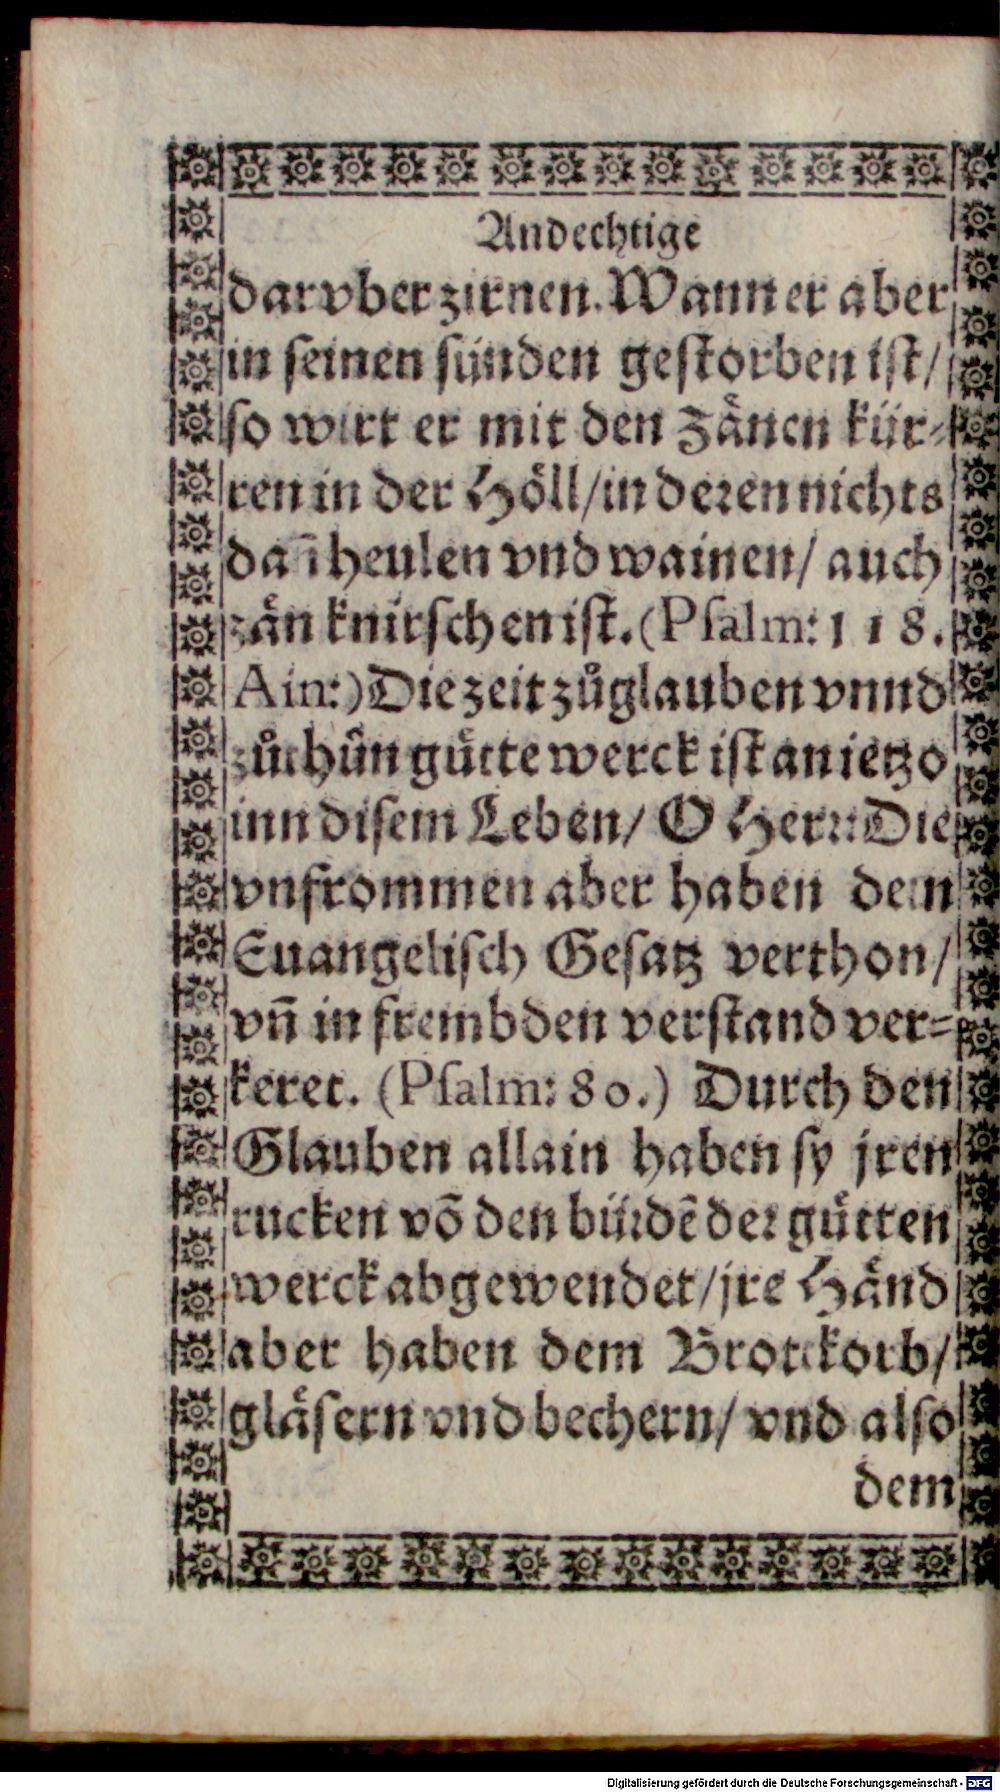 Andechtige
darvber zirnen. Wann er aber
in seinen sünden gestorben ist/
so wirt er mit den Zänen kür-
ren in der Höll/in deren nichts
dañ heulen vnd wainen/ auch
zän knirschen ist. (Psalm: 118.
Ain:) Die zeit zů glauben vnnd
zůthůn gůtte werck ist an ietzo
inn disem Leben/ O Herr: Die
vnfrommen aber haben dein
Euangelisch Gesatz verthon/
vñ in frembden verstand ver-
keret. (Psalm: 80.) Durch den
Glauben allain haben sy jren
rucken võ den bürdẽ der gůtten
werck abgewendet/jre Händ
aber haben dem Brotkorb/
gläsern vnd bechern/ vnd also
dem
Digitalisierung gefördert durch die Deutsche Forschungsgemeinschaft - DFG